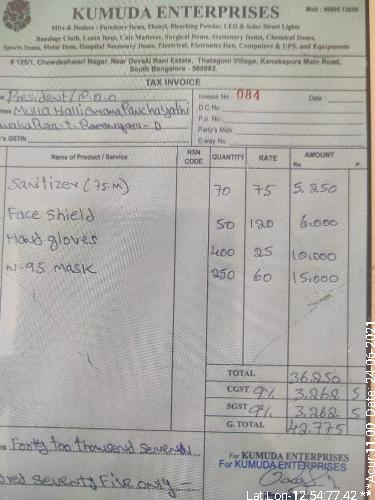 KUMUDA ENTERPRISES
Mob : 99805 13698
Mfrs & Dealers - Furniture Items, Phenyl, Bleaching Powder, LED & Solar Street Lights
Bandage Cloth, Lenin Item, Coir Mattress, Surgical Items, Stationery Items, Chemical Items,
Sports Items, Metal Item, Hospital Necessary Items, Electrical, Eletronics Item, Computers & UPS, and Equipments
# 125/1, Chowdeshwari Nagar, Near Devaki Rani Estate, Thataguni Village, Kanakapura Main Road,
South Bangalore - 560082.
TAX INVOICE
President / P.D.O
Invoice No. 084 Date :
D.C No.
Mulla Halli Grama Panchayathi
P.o. No.
Party's Mob.
's GSTIN
E-way No.
Name of Product / Service HSN CODE QUANTITY RATE AMOUNT
Rs. P.
Sanitizer (75 M) 70 75 5,250
Face Shield 50 120 6,000
Hand gloves 400 25 10,000
N-95 MASK 250 60 15,000
TOTAL 36,250
CGST 9% 3,262 5
SGST 9% 3,262 5
G. TOTAL 42,775
Forty too thousand sevenn
dred seventy Five only
For KUMUDA ENTERPRISES
For KUMUDA ENTERPRISES
Lat Lon-12.54,77.42
***Acur:11.00 Date: 24-06-2021